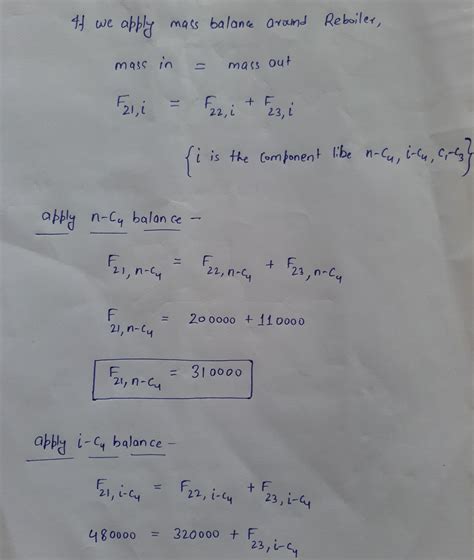 If we apply mass balance around Reboiler,
mass in = mass out
F21,i = F22,i + F23,i
{i is the component like n-C4, i-C4, C1-C3}
apply n-C4 balance -
F21,n-C4 = F22,n-C4 + F23,n-C4
F21,n-C4 = 200000 + 110000
F21,n-C4 = 310000
apply i-C4 balance -
F21,i-C4 = F22,i-C4 + F23,i-C4
480000 = 320000 + F23,i-C4